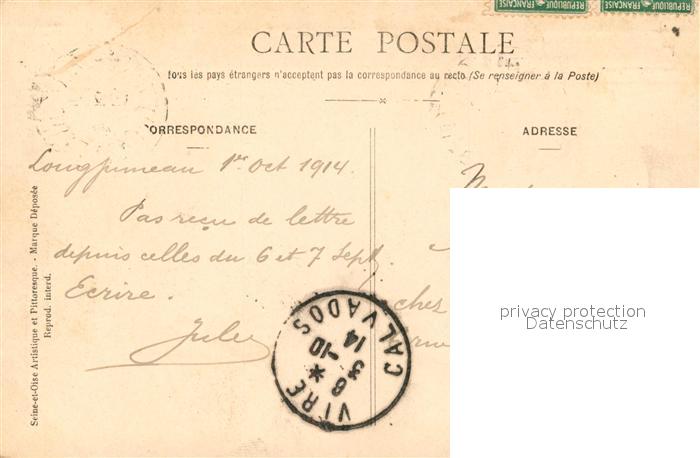 RÉPUBLIQUE FRANÇAISE RÉPUBLIQUE FRANÇAISE
CARTE POSTALE
Tous les pays étrangers n'acceptent pas la correspondance au recto (Se renseigner à la Poste)
CORRESPONDANCE
ADRESSE
Longjumeau 1er Oct 1914.
Pas reçu de lettre
depuis celles du 6 et 7 Sept.
Ecrire.
Jules
VIRE * CALVADOS
8
3 -10
14
Seine-et-Oise Artistique et Pittoresque. - Marque Déposée
Reprod. interd.
privacy protection
Datenschutz